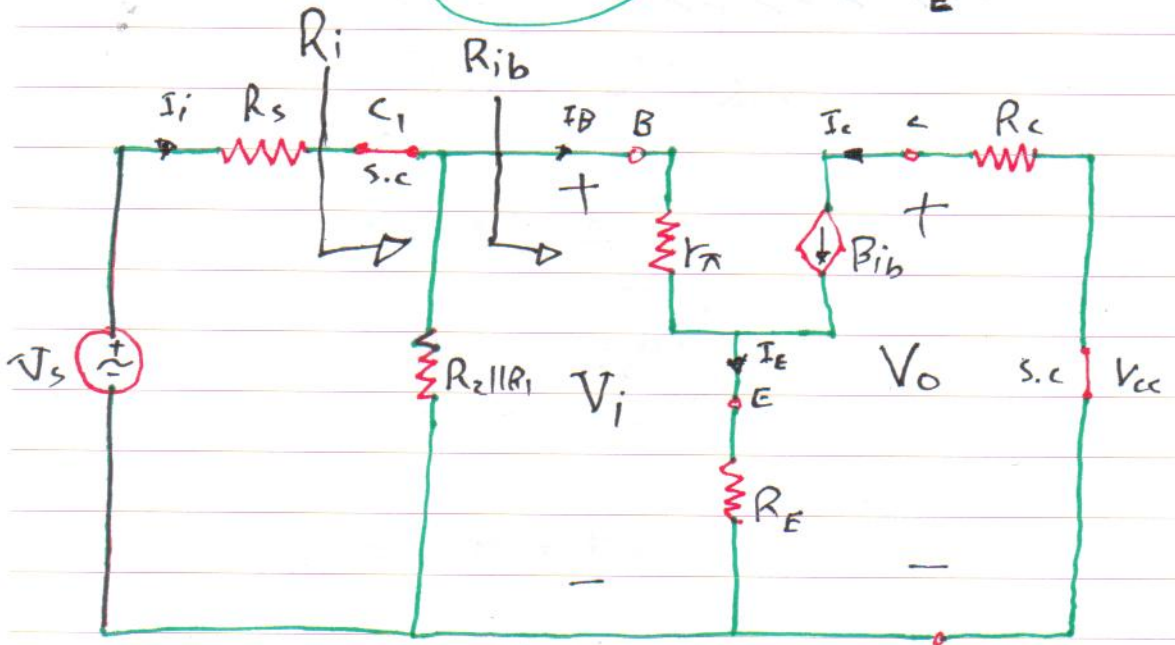 E
Ri
Rib
Ii Rs C1 IB B Ic c Rc
s.c
+ +
rπ
βib
Vs
+
-
R2||R1
Vi
IE
E
Vo
s.c Vcc
RE
- -